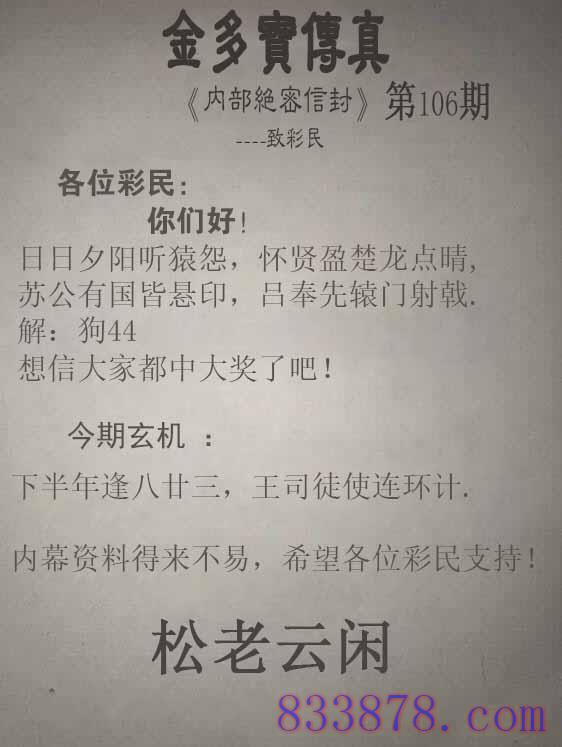 金多寶傳真
《内部絕密信封》第106期
----致彩民
各位彩民:
你们好!
日日夕阳听猿怨，怀贤盈楚龙点晴,
苏公有国皆悬印，吕奉先辕门射戟.
解：狗44
想信大家都中大奖了吧!
今期玄机 ：
下半年逢八廿三，王司徒使连环计.
内幕资料得来不易，希望各位彩民支持!
松老云闲
833878.com